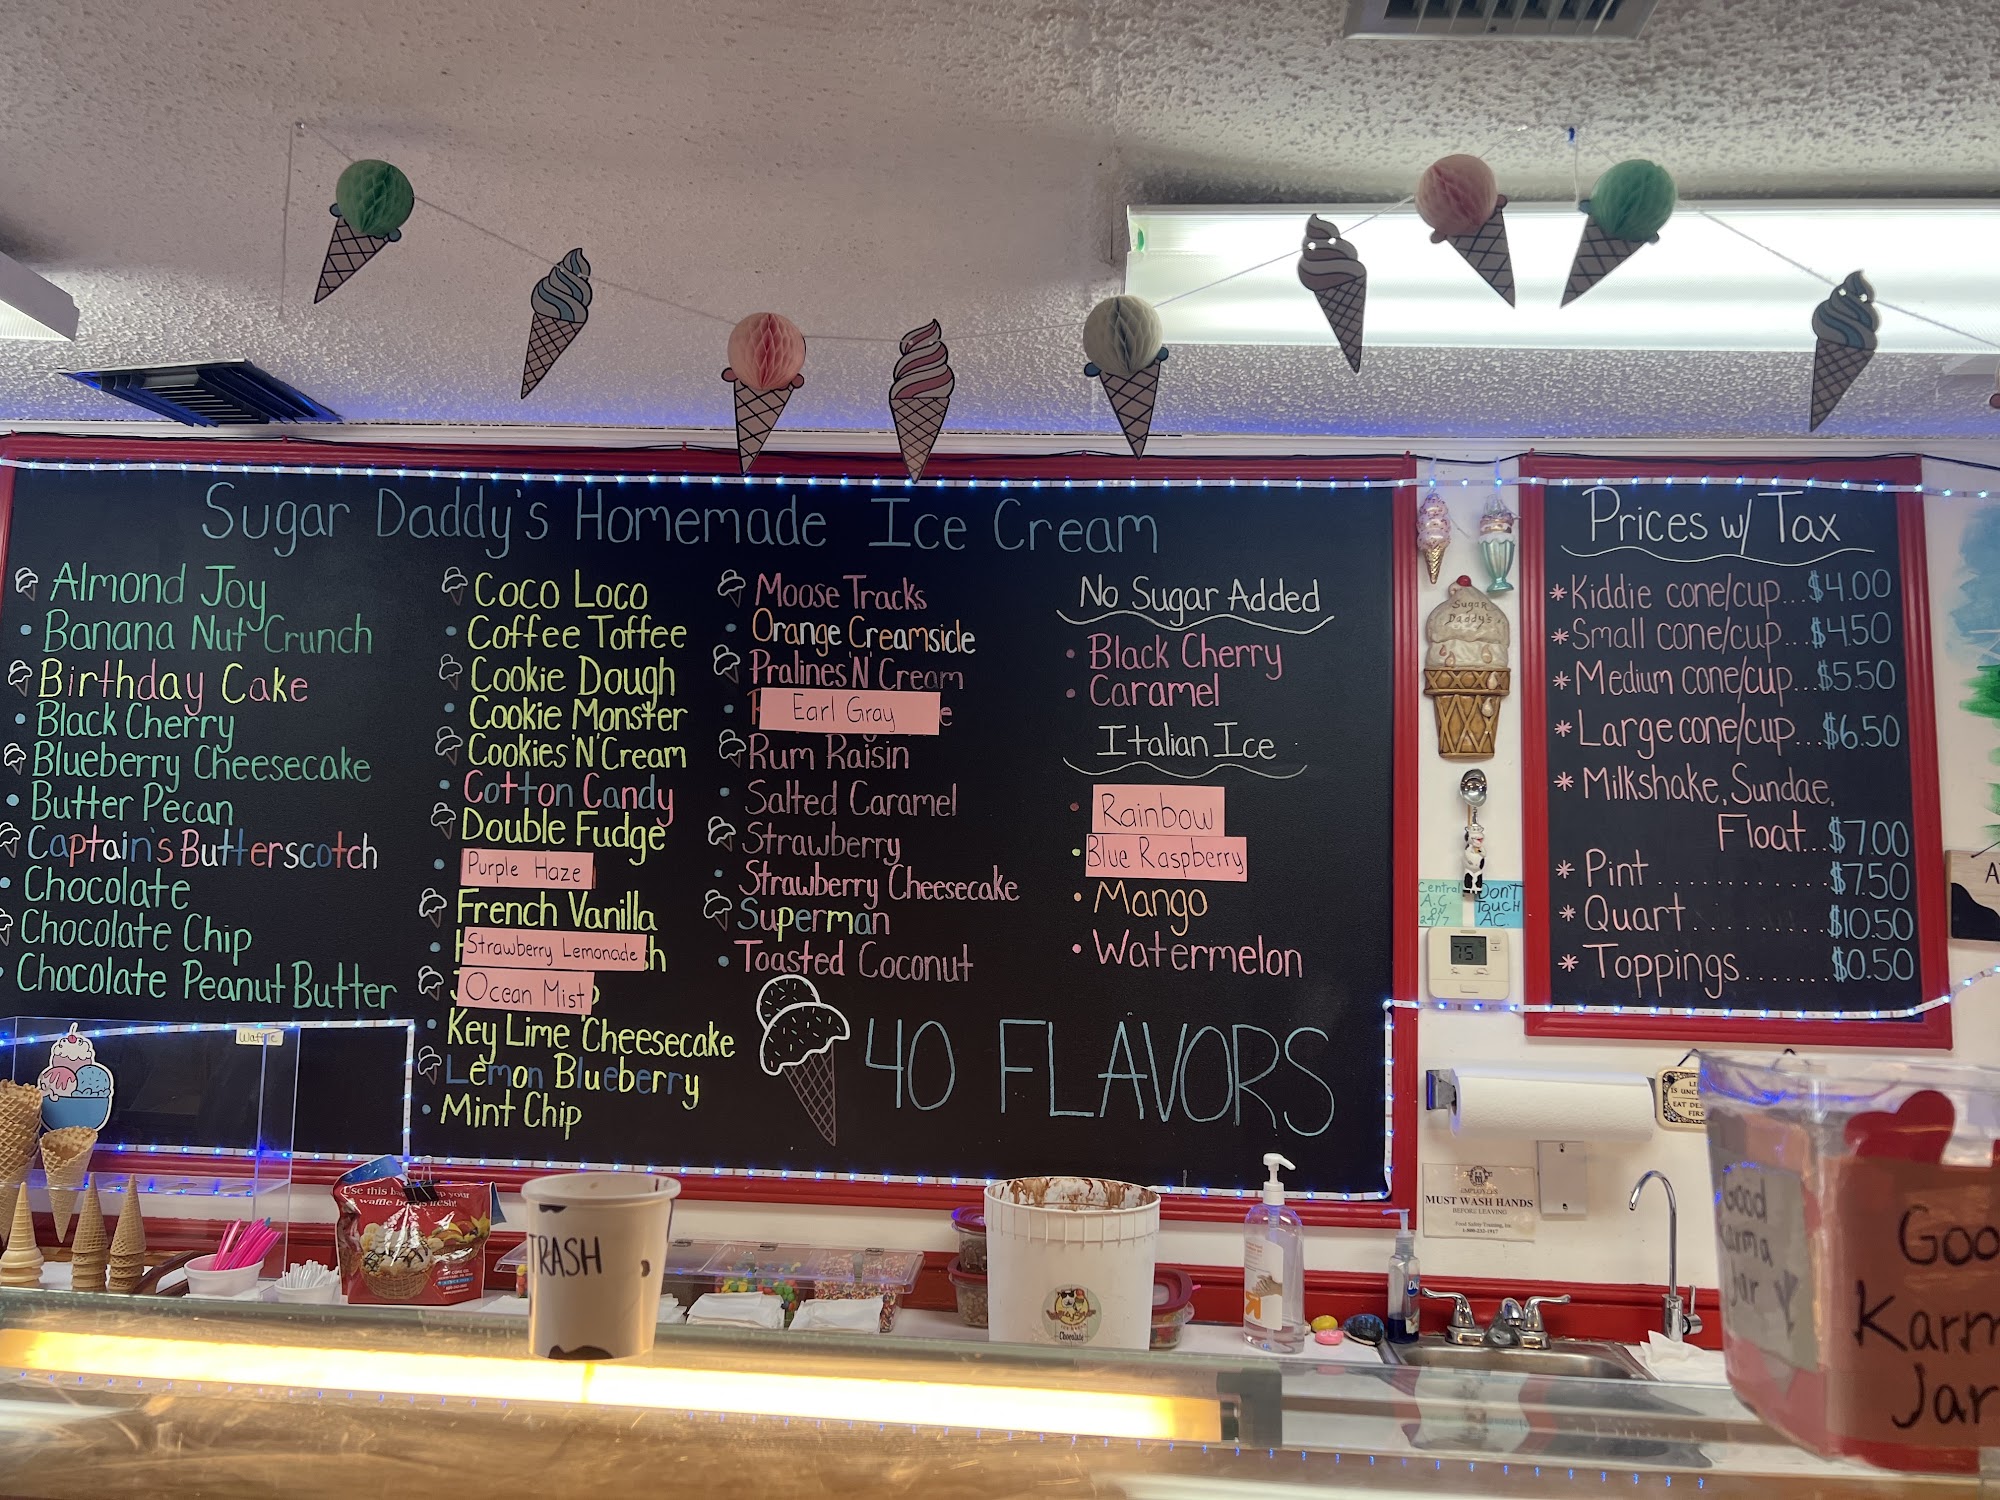 Sugar Daddy's Homemade Ice Cream
Almond Joy
Banana Nut Crunch
Birthday Cake
Black Cherry
Blueberry Cheesecake
Butter Pecan
Captain's Butterscotch
Chocolate
Chocolate Chip
Chocolate Peanut Butter
Coco Loco
Coffee Toffee
Cookie Dough
Cookie Monster
Cookies 'N' Cream
Cotton Candy
Double Fudge
Purple Haze
French Vanilla
Strawberry Lemonade
Ocean Mist
Key Lime Cheesecake
Lemon Blueberry
Mint Chip
Moose Tracks
Orange Creamsicle
Pralines 'N' Cream
Earl Gray
Rum Raisin
Salted Caramel
Strawberry
Strawberry Cheesecake
Superman
Toasted Coconut
40 FLAVORS
No Sugar Added
Black Cherry
Caramel
Italian Ice
Rainbow
Blue Raspberry
Mango
Watermelon
Sugar
Daddy's
Central
A.C.
on
24/7
Don't
Touch
AC
75
Prices w/ Tax
* Kiddie cone/cup...$4.00
* Small cone/cup...$4.50
* Medium cone/cup...$5.50
* Large cone/cup...$6.50
* Milkshake, Sundae,
Float...$7.00
* Pint............$7.50
* Quart..........$10.50
* Toppings......$0.50
Waffle
Use this
waffle
fresh!
TRASH
Chocolate
EMPLOYEES
MUST WASH HANDS
BEFORE LEAVING
EAT
FIRS
Good
Karma
Jar
Goo
Karm
Jar